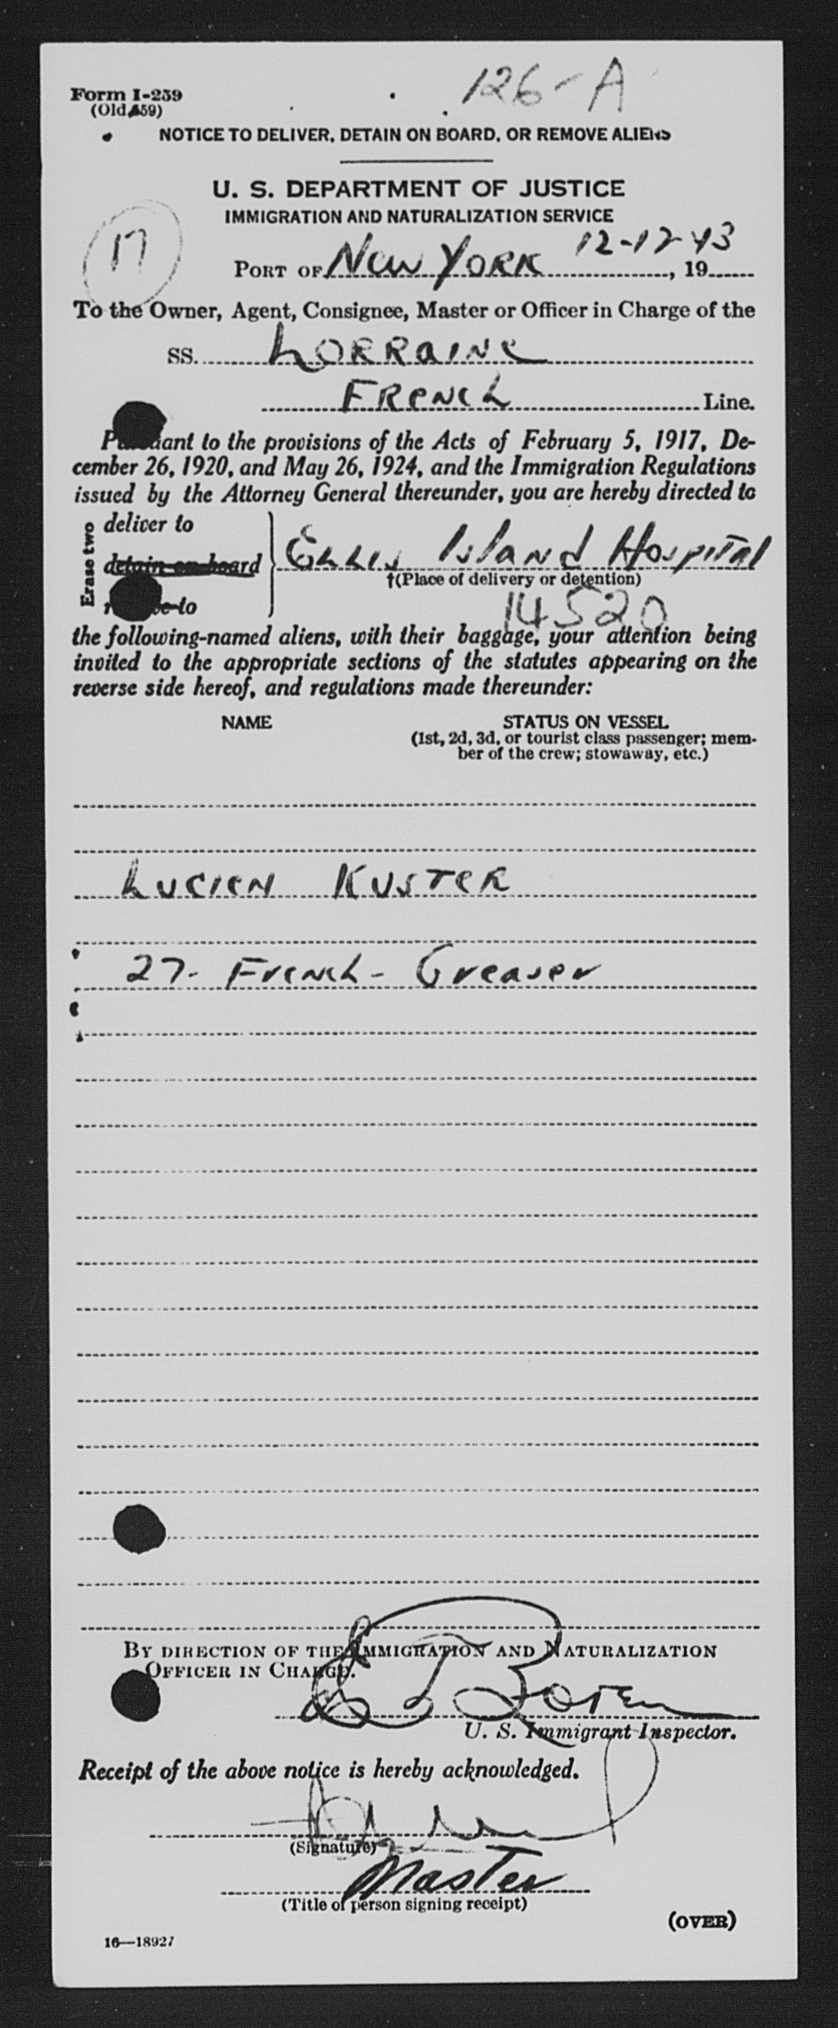 126-A
Form I-259
(Old 659)
NOTICE TO DELIVER, DETAIN ON BOARD, OR REMOVE ALIENS
U. S. DEPARTMENT OF JUSTICE
IMMIGRATION AND NATURALIZATION SERVICE
17
PORT OF New York 12-12-43, 19
To the Owner, Agent, Consignee, Master or Officer in Charge of the
SS. Lorraine
French Line.
Pursuant to the provisions of the Acts of February 5, 1917, De-
cember 26, 1920, and May 26, 1924, and the Immigration Regulations
issued by the Attorney General thereunder, you are hereby directed to
Erase two
deliver to
detain on board
to
Ellis Island Hospital
†(Place of delivery or detention)
14520
the following-named aliens, with their baggage, your attention being
invited to the appropriate sections of the statutes appearing on the
reverse side hereof, and regulations made thereunder:
NAME STATUS ON VESSEL
(1st, 2d, 3d, or tourist class passenger; mem-
ber of the crew; stowaway, etc.)
Lucien Kuster
27- French - Greaser
BY DIRECTION OF THE IMMIGRATION AND NATURALIZATION
OFFICER IN CHARGE.
U. S. Immigrant Inspector.
Receipt of the above notice is hereby acknowledged.
(Signature)
Master
(Title of person signing receipt)
(OVER)
16—18927